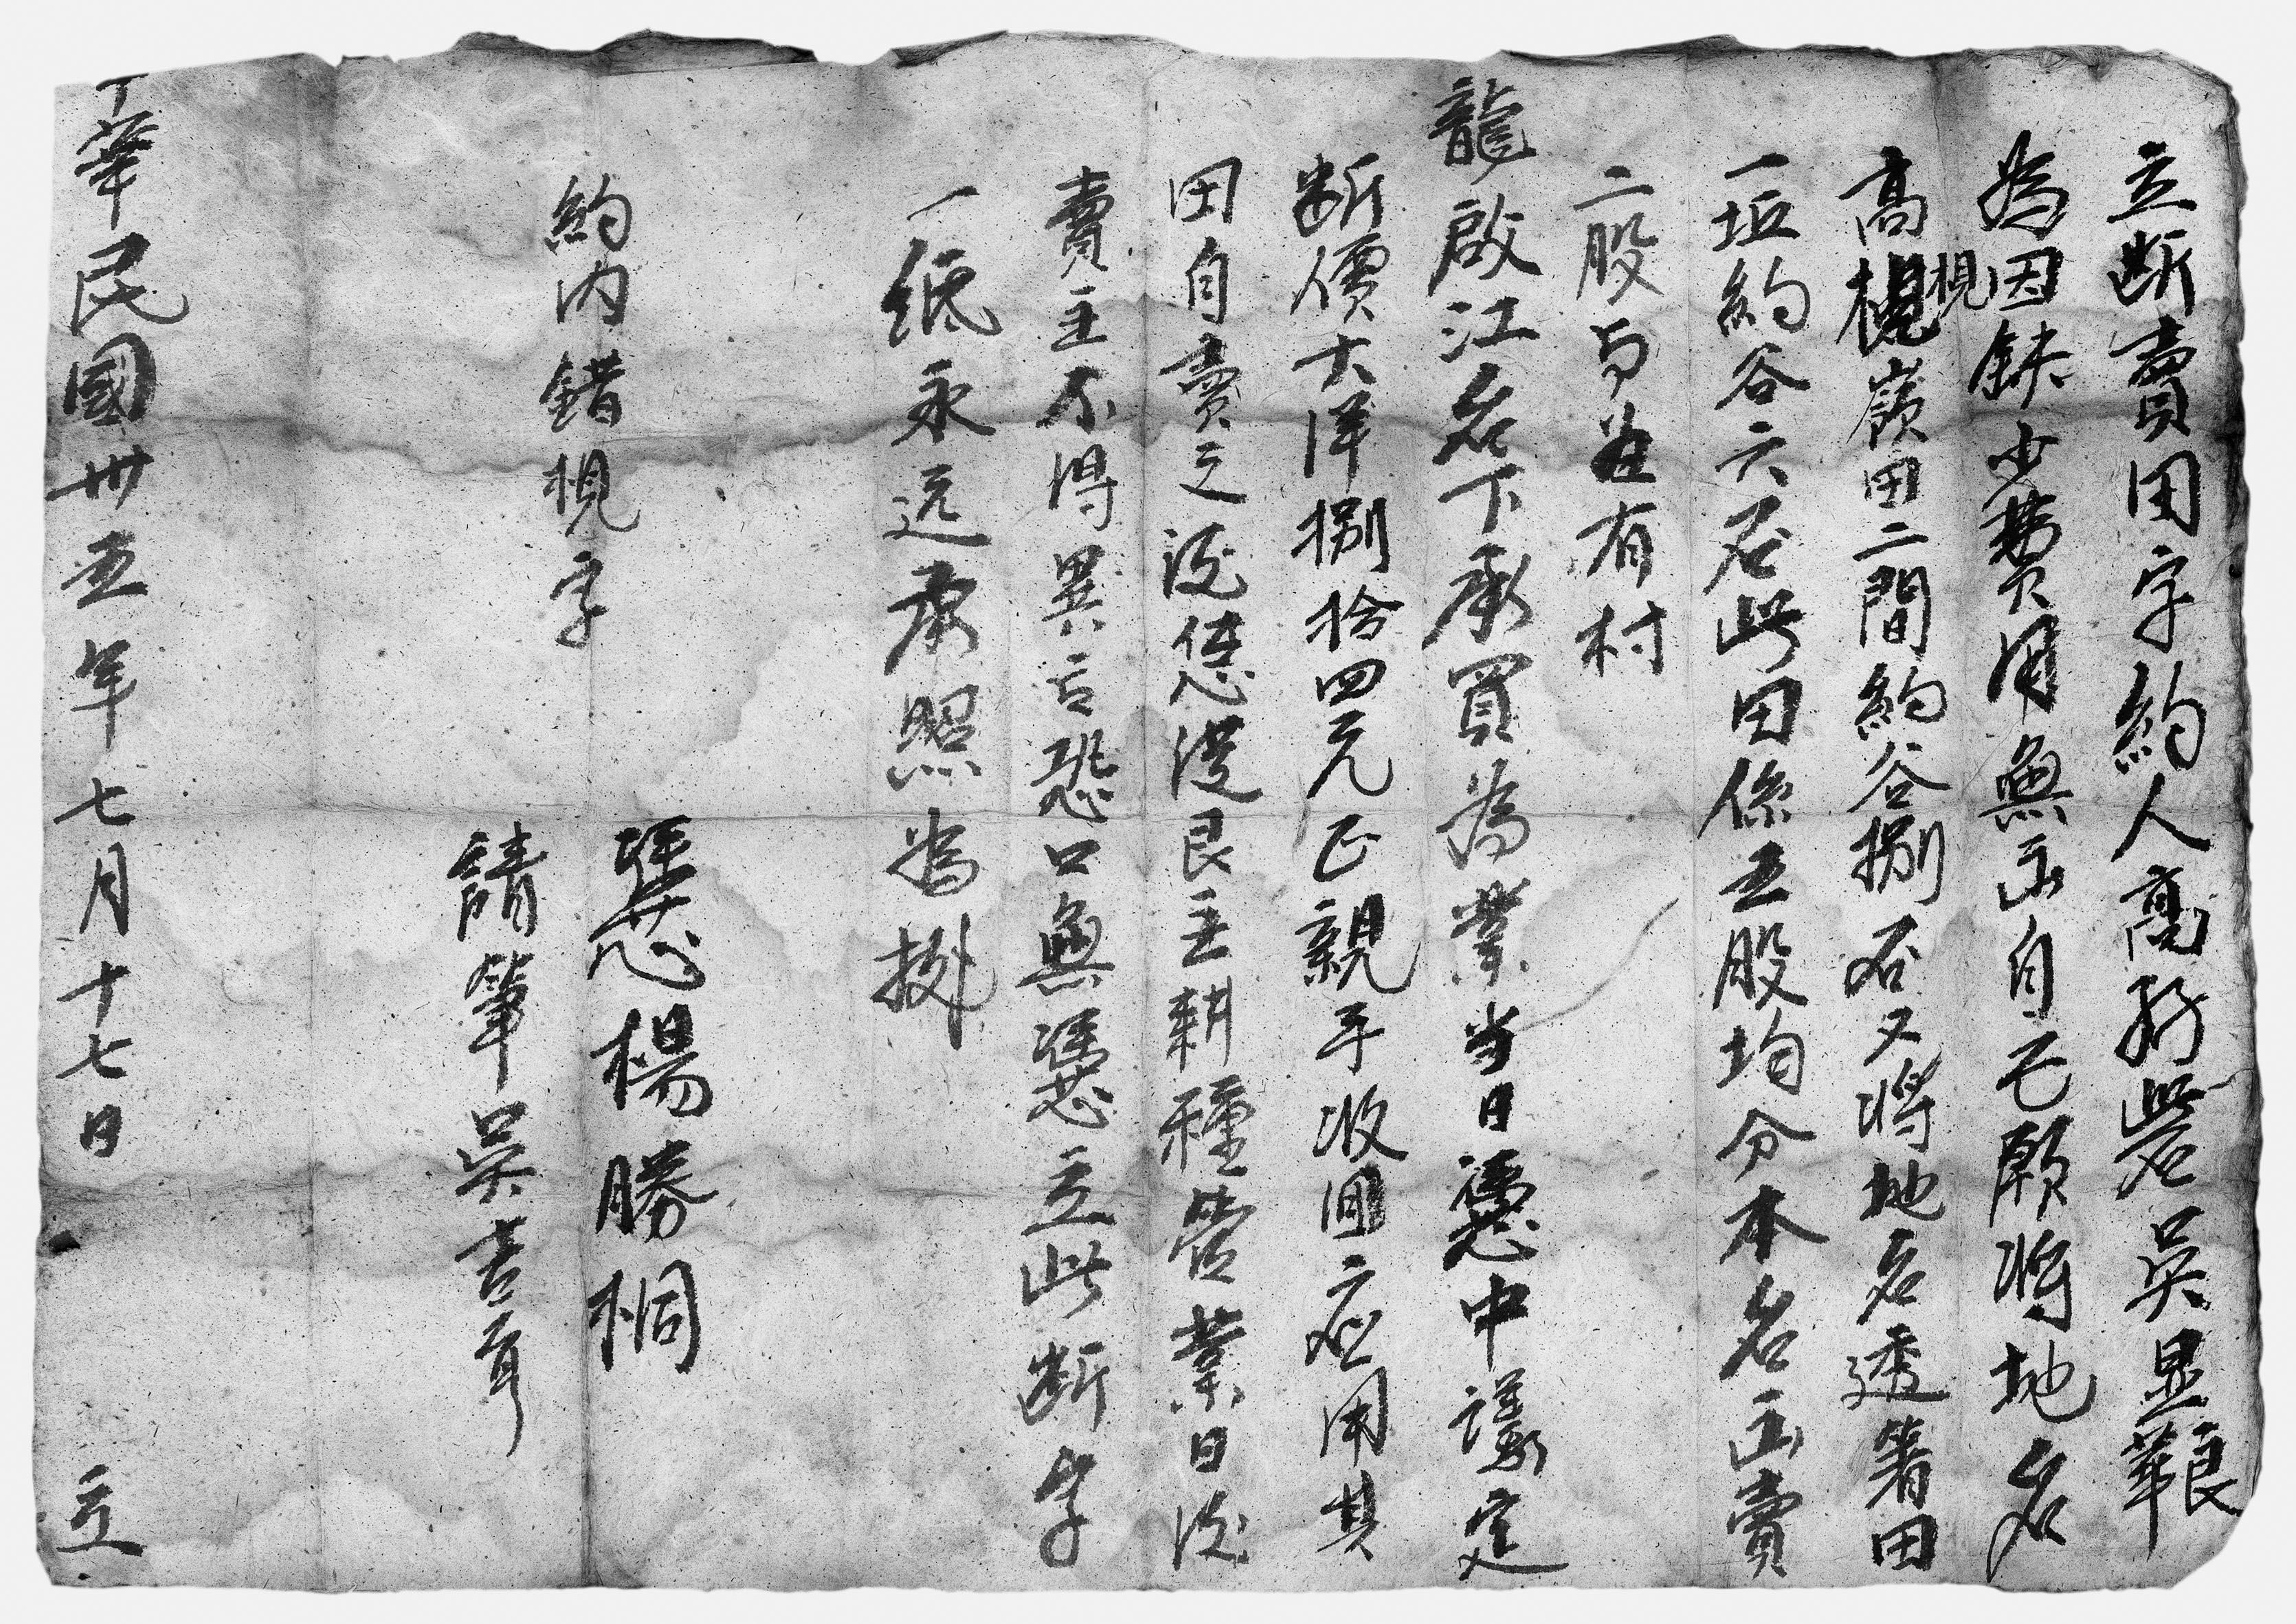 立断賣田字約人高砦吳显艱
為因缺少費用無出自己願將地名
高梘嶺田二間約谷捌石又將地名透箸田
梘
一坵約谷六石此田係五股均分本名出賣
二股与 有村
龍啟江名下承買為業当日憑中議定
断價大洋捌拾四元正親手收回应用其
田自賣之後任憑買主耕種营業日後
賣主不得異言恐口無憑立此断字
一纸永远存照為據
約内錯梘字
憑楊勝桐
請筆吳吉
華民國卅五年七月十七日 立